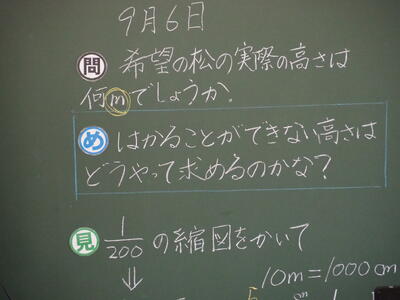 9月6日
問 希望の松の実際の高さは
何mでしょうか。
め はかることができない高さは
どうやって求めるのかな?
見 1/200 の縮図をかいて
⇓
10m=1000cm